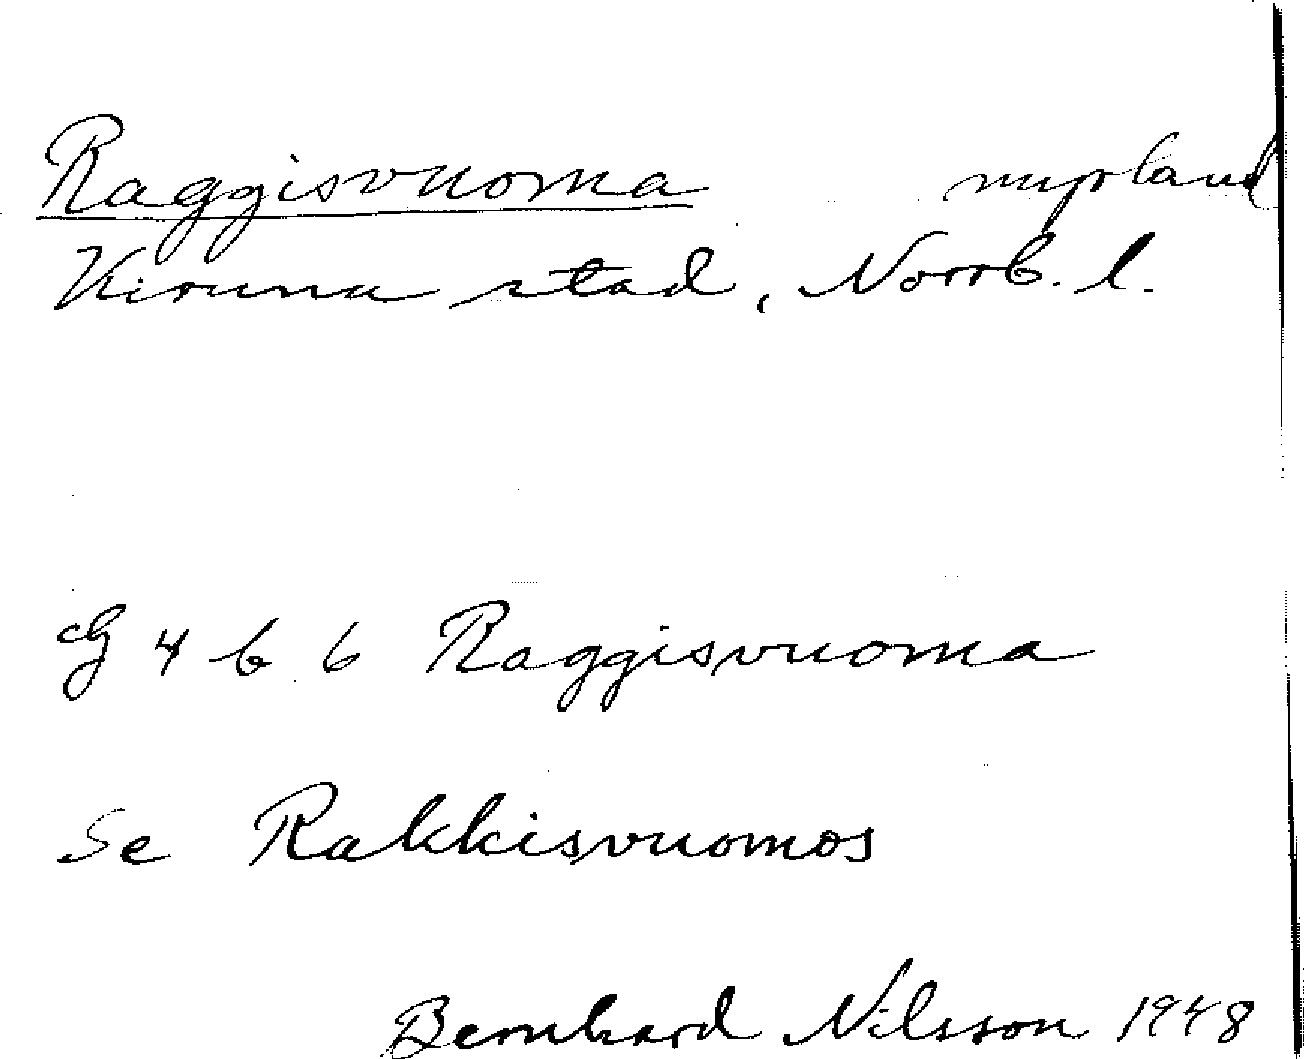 Raggisvuoma myrland
Kiruna stad, Norrb. l.
cg 4 b 6 Raggisvuoma
Se Rakkisvuomos
Bernhard Nilsson 1948